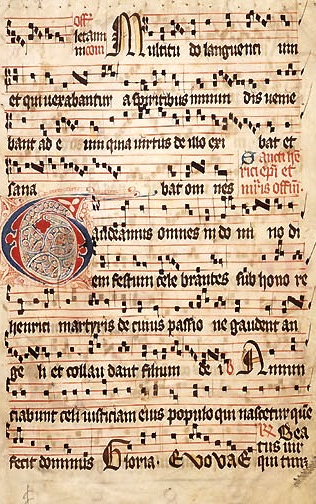 Offm
letam
incom Multitu do languenti um
et qui uexabantur a spiritibus inmun dis uenie
bant ad e um quia uirtus de illo exi bat et
sana bat om nes Sancti he
rici epi et
mris offm
Gaudeamus omnes in do mi no di
em festum cele brantes sub hono re
henrici martyris de cuius passio ne gaudent an
ge li et collau dant filium de i Annun
ciabunt celi iusticiam eius populo qui nascetur que
fecit dominus Gloria. Euouae Bea
tus uir
qui tim.